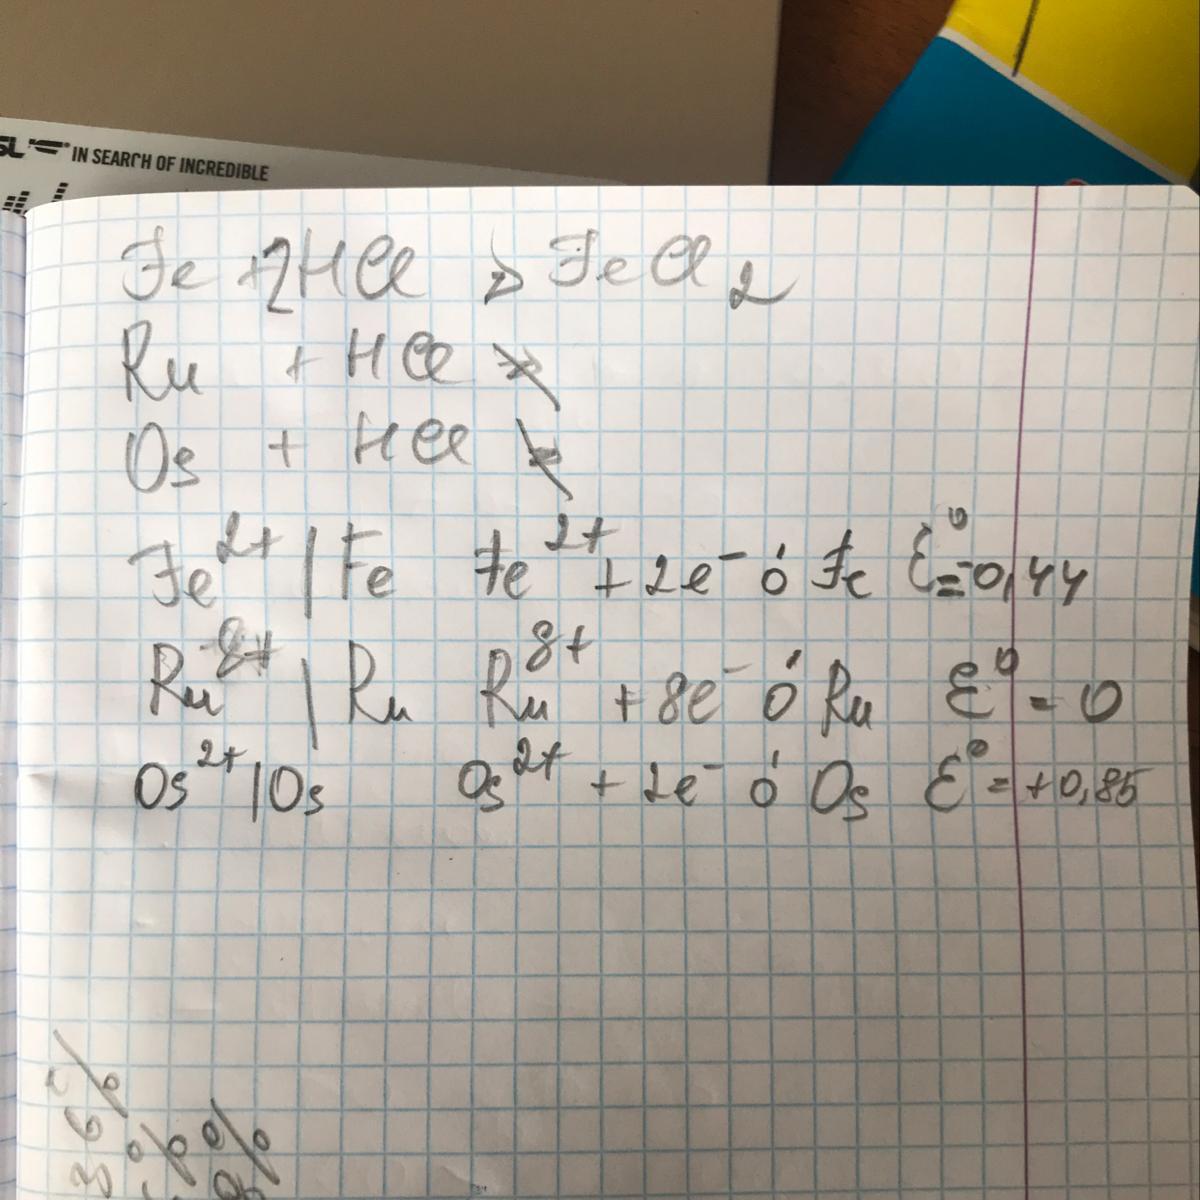 IN SEARCH OF INCREDIBLE
Fe +2HCl → FeCl₂
Ru + HCl ↛
Os + HCl ↛
Fe²⁺ | Fe Fe²⁺ + 2e⁻ ó Fe Ɛ⁰=-0,44
Ru⁸⁺ | Ru Ru⁸⁺ + 8e⁻ ó Ru Ɛ⁰ = 0
Os²⁺ | Os Os²⁺ + 2e⁻ ó Os Ɛ⁰ = +0,85